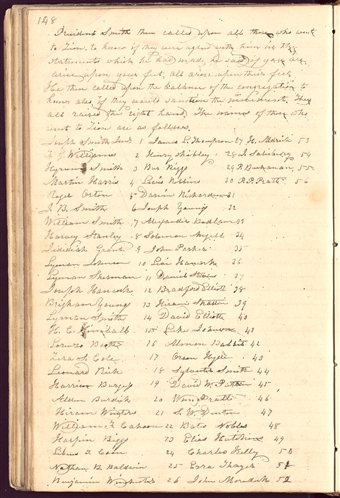 148
President Smith then called upon all those who went
to Zion to know if they were agreed with him in the
statements which he had made, he said if you are,
arise upon your feet, all arose upon their feet.
He then called upon the balance of the congregation to
know also if they would sanction the movement, they
all raised the right hand. The names of those who
went to Zion are as follows.
Joseph Smith Jun 1 James L. Thompson 27 H. 53
F. G. Williams 2 Henry Shibley 28 J. Salisbury 54
Hyrum Smith 3 Bur Riggs 29 P. Buchanan 55
Martin Harris 4 Lewis Robbins 30 P. P. Pratt 56
Roger Orton 5 Darwin Richardson 31
J. B. Smith 6 Joseph Young 32
William Smith 7 Alexander Badlam 33
Harvey Stanley 8 Solomon Angell 34
Jedidiah Grant 9 John Parker 35
Lyman Johnson 10 Levi Hancock 36
Lyman Sherman 11 Daniel 37
Joseph Hancock 12 Bradford Elliott 38
Brigham Young 13 Hiram 39
Lyman Smith 14 David Elliott 40
H. C. Kimball 15 Luke Johnson 41
Lorenzo Booth 16 Almon Babbitt 42
Zera S. Cole 17 Orson Hyde 43
Leonard Rich 18 Sylvester Smith 44
Harrison Burgess 19 David W. Patten 45
Alden Burdick 20 Wm Pratt 46
Hiram Winters 21 S. W. Denton 47
William F. Cahoon 22 Bates Noble 48
Harpin Riggs 23 Elias Hutchins 49
24 Charles Kelly 50
Nathan B. Baldwin 25 Ezra Thayer 51
Benjamin 26 John 52